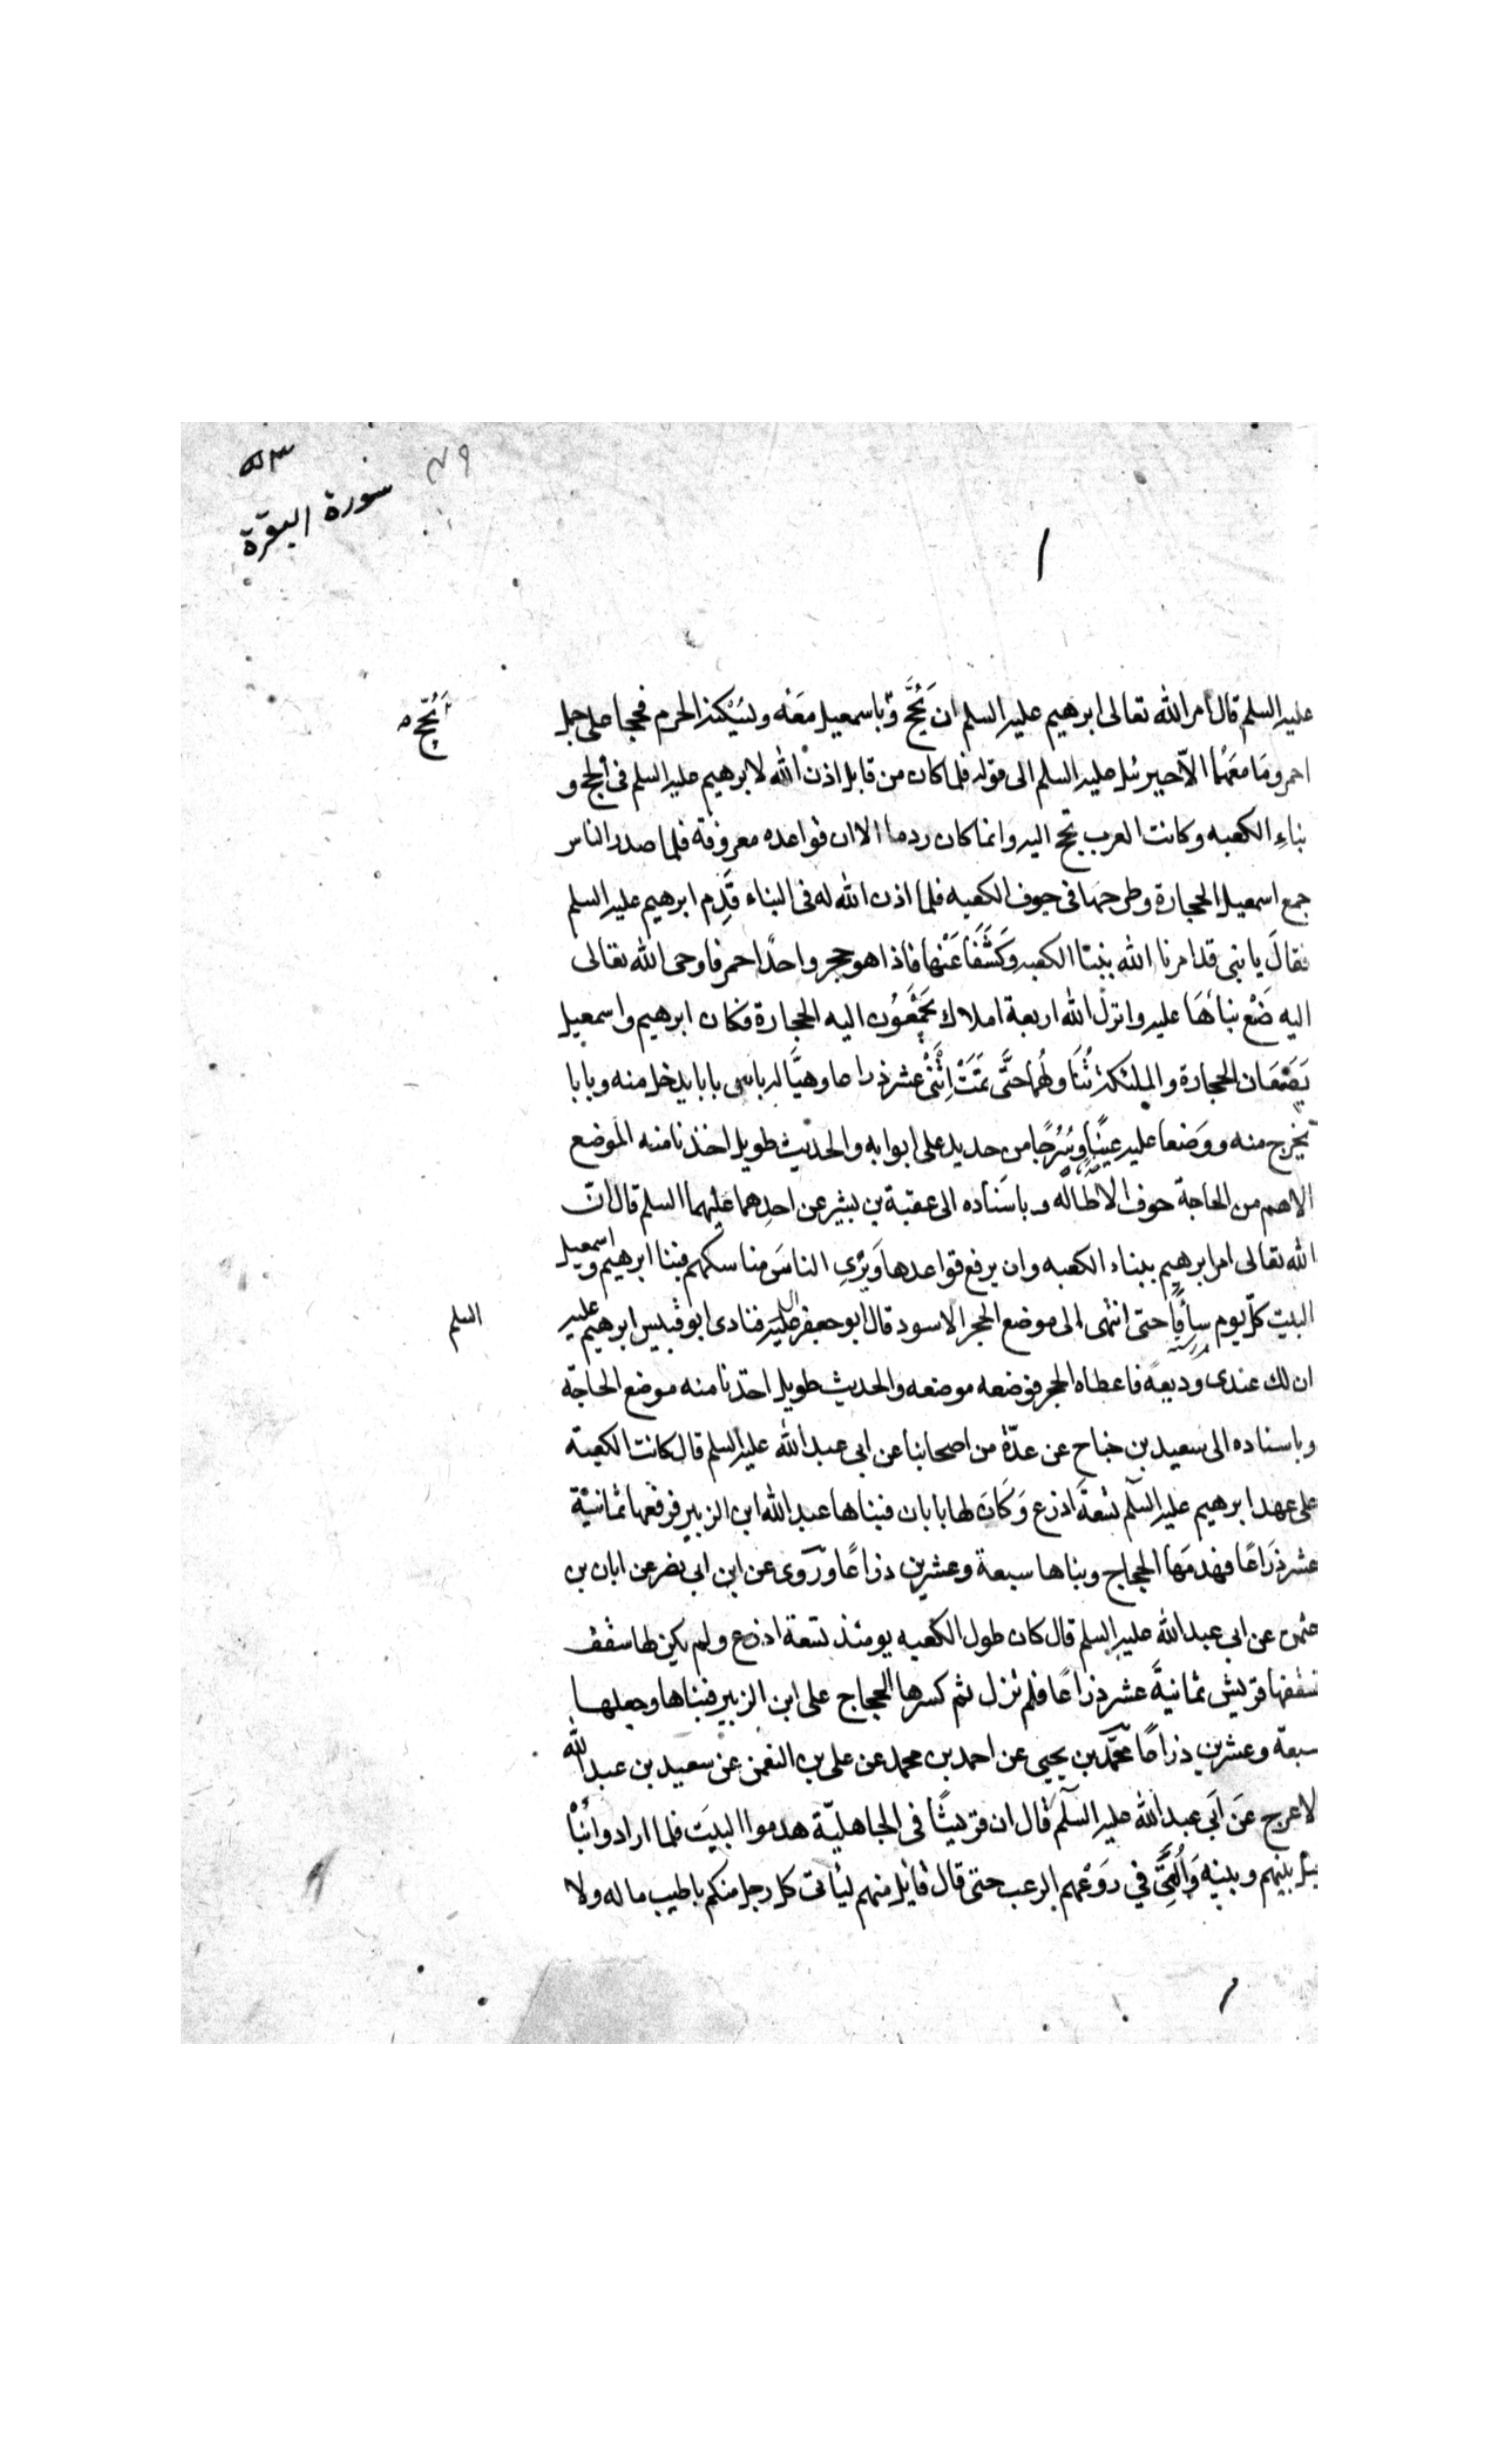 ٥٣
سورة البقرة
عليه السلم قال امر الله تعالى ابرهيم عليه السلم ان يَحُجَّ وباسمعيل مَعَه وليُسْكنه الحرم فحجا على جمل
يَحُجّ
احمر ومَا معَهُما الّا جبرئيل عليه السلم الى قوله فلما كان من قابل اذن الله لابرهيم عليه السلم فى الحج و
بناءِ الكعبه وكانت العرب تحج اليه وانما كان ردما الا ان قواعده معروفة فلما صدر الناس
جمع اسمعيل الحجارة وطرحها فى جوف الكعبه فلما اذن الله له فى البناء قَدِم ابرهيم عليه السلم
فقالَ يا بنى قد امرنا الله ببنَا الكعبه وكَشَفَا عَنْها فاذا هو حجر واحدٌ احمر فاوحى الله تعالى
اليه ضَعْ بنائَهَا عليه وانزل الله اربعة املاك يَجْمَعُون اليه الحجارة فكان ابرهيم واسمعيل
يَضَعَان الحجارة والملئكة تُنَاولهُما حتَّى تمَّتْ اِثْنَىْ عشر ذراعا وهيَّا له بابى بابا يدخل منه وبابا
يخرج منه ووَضعا عليه عَتَبًا وسُرُجًا من حديد على ابوابه والحديث طويل اخذنا منه الموضع
الاهم من الحاجة خوف الاطاله وباسناده الى عقبة بن بشير عن احدِهما عليهما السلم قال انّ
الله تعالى امر ابرهيم ببناء الكعبه وان يرفع قواعدها ويُرِى الناسَ مناسكهم فبنا ابرهيم واسمعيل
البيت كلّ يوم سافًا حتى انتهى الى موضع الحجر الاسود قال ابو جعفر عليه السلم فنادى ابو قبيس ابرهيم عليه
السلم
ان لك عندى وديعةً فاعطاه الحجر فوضعه موضعه والحديث طويل اخذنا منه موضع الحاجة
وباسناده الى سعيد بن جناح عن عدّة من اصحابنا عن ابى عبد الله عليه السلم قال كانت الكعبة
على عهد ابرهيم عليه السلم تسْعةَ اذرع وَكَانَ لها بابان فبناها عبد الله ابن الزبير فرفعها ثمانية
عشر ذرَاعًا فهدمَها الحجاج وبناها سبعة وعشرين ذراعًا ورَوى عن ابن ابى نصر عن ابان بن
عثمن عن ابى عبد الله عليه السلم قال كان طول الكعبه يومئذ تسعة اذرع ولم يكن لها سقف
فسقفها قريش ثمانيةَ عشر ذراعًا فلم تزل ثم كسرها الحجاج على ابن الزبير فبناها وجعلها
سبعة وعشرين ذراعًا محمّد بن يحيى عن احمد بن محمد عن على بن النعمن عن سعيد بن عبد الله
الاعرج عَن اَبى عبد الله عليه السلم قال ان قريشًا فى الجاهليّة هدموا البيتَ فلما ارادوا بناْ
حيل بينهم وبينه وَاُلْقِىَ في رَوْعهم الرعب حتى قال قايل منهم لياتى كل رجل منكم باطيب ماله ولا